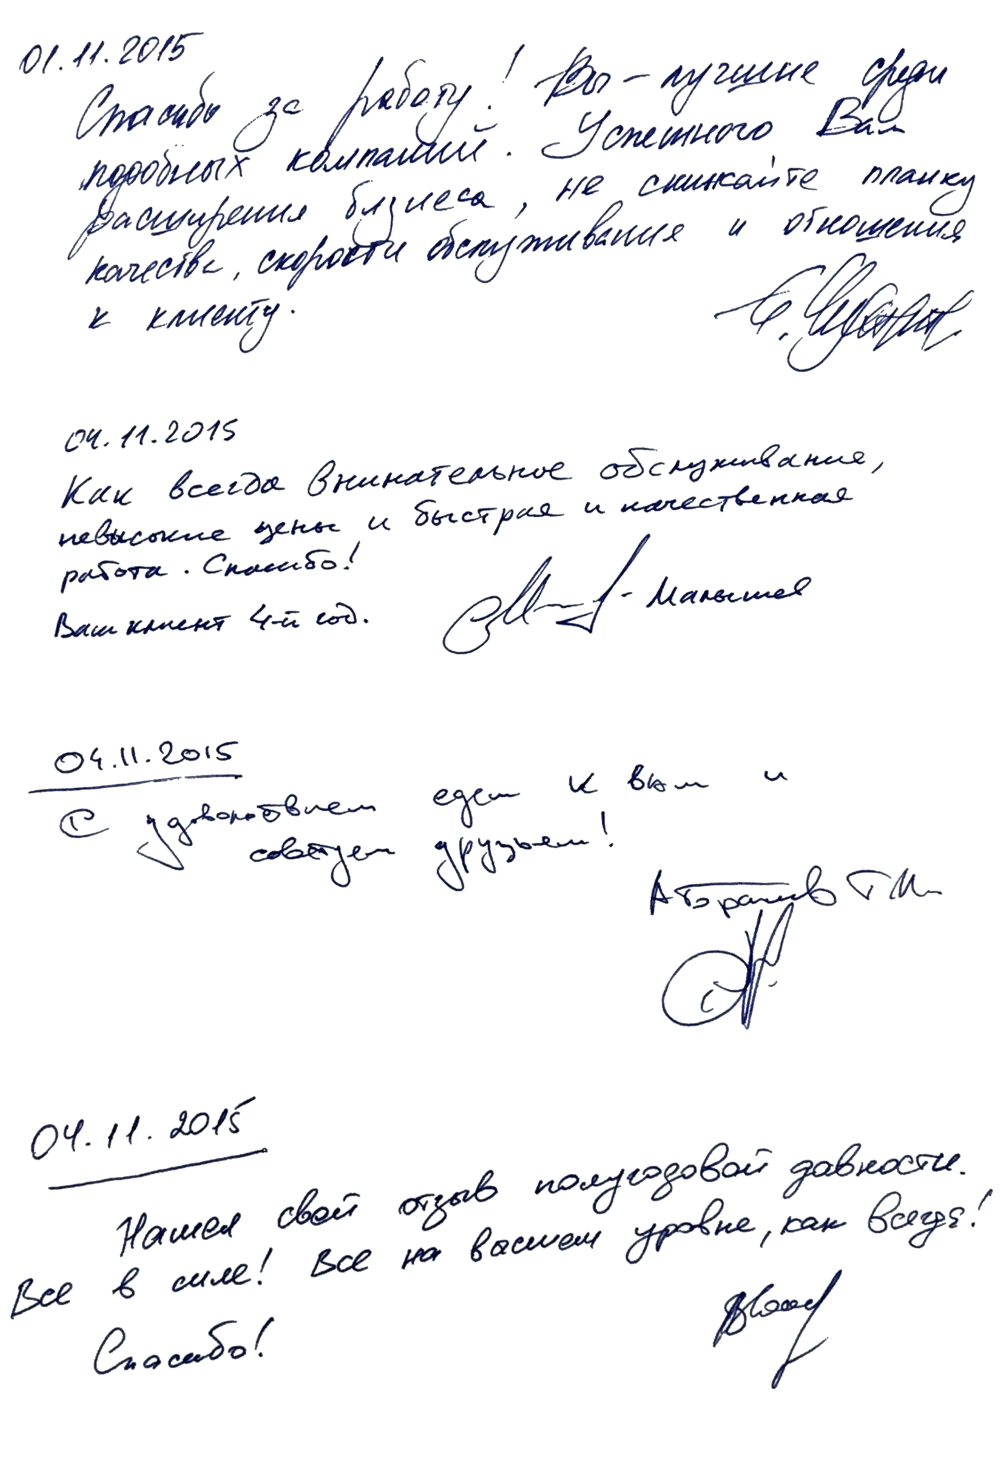 01.11.2015
Спасибо за работу! Вы - лучшие среди
подобных компаний. Успешного Вам
расширения бизнеса, не снижайте планку
качества, скорости обслуживания и отношения
к клиенту.
04.11.2015
Как всегда внимательное обслуживание,
невысокие цены и быстрая и качественная
работа. Спасибо!
Ваш клиент 4-й год. - Малышев
04.11.2015
С удовольствием едем к вам и
советуем друзьям!
Т.И.
04.11.2015
Нашел свой отзыв полугодовой давности.
Все в силе! Все на вашем уровне, как всегда!
Спасибо!